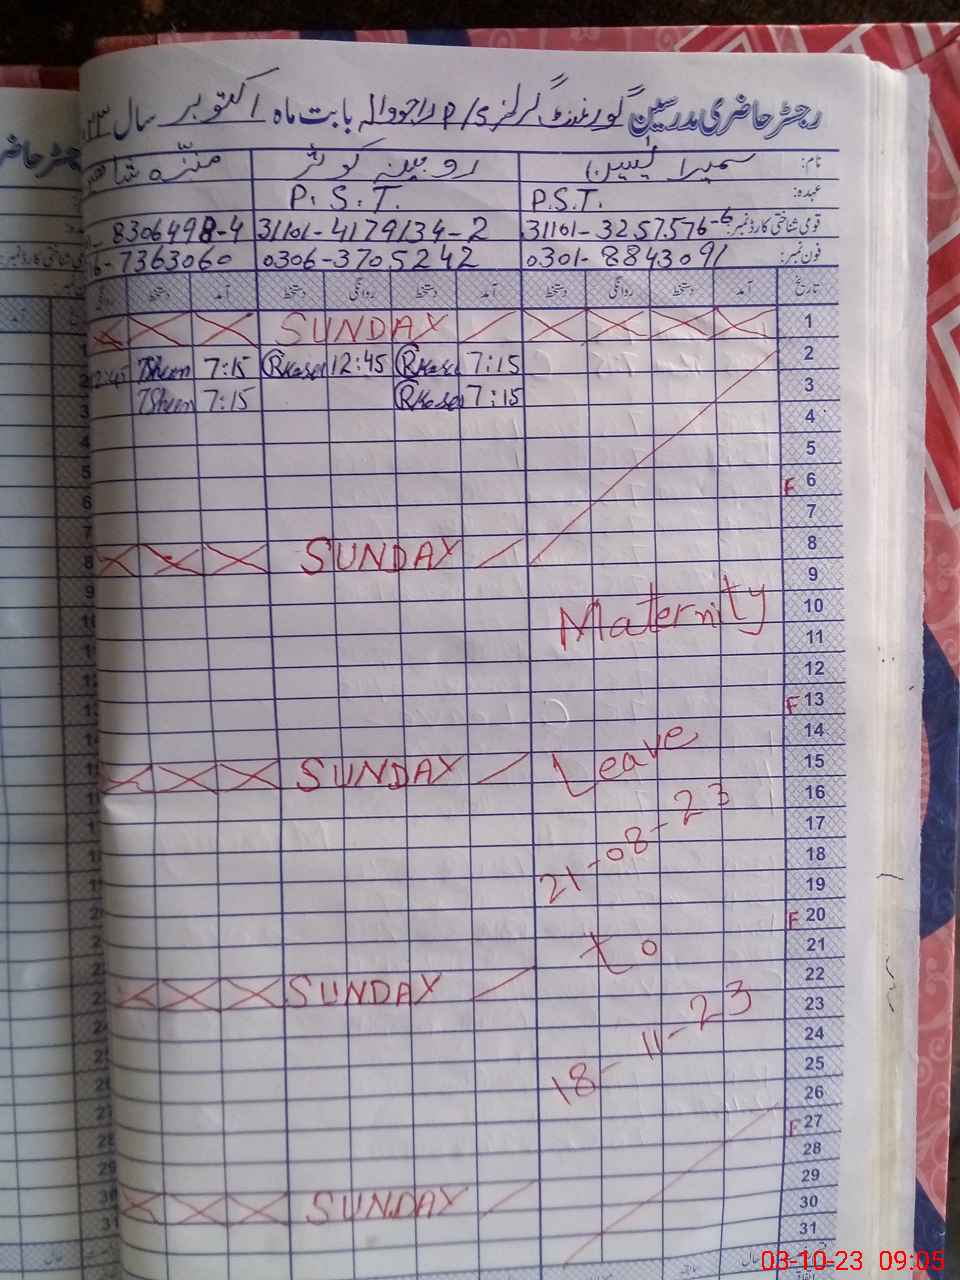 رجسٹر حاضری مدرسین گورنمنٹ گرلز P/S راجووالہ بابت ماہ اکتوبر سال ۲۳
نام: سمیرا یٰسین روبینہ کوثر منزہ شا
عہدہ: P.S.T. P.S.T.
قومی شناختی کارڈ نمبر: 31101-3257576-6 31101-4179134-2 8306498-4
فون نمبر: 0301-8843091 0306-3705242 6-7363060
تاریخ آمد دستخط روانگی دستخط آمد دستخط روانگی دستخط آمد دستخط روانگی
1 SUNDAY
2 7:15 12:45 7:15 12:45
3 7:15 7:15
4
5
F 6
7
8 SUNDAY
9
10 Maternity
11
12
F 13
14
15 SUNDAY Leave
16
17 21-08-23
18
19
F 20
21 to
22 SUNDAY
23
24 18-11-23
25
26
F 27
28
29 SUNDAY
30
31
03-10-23 09:05